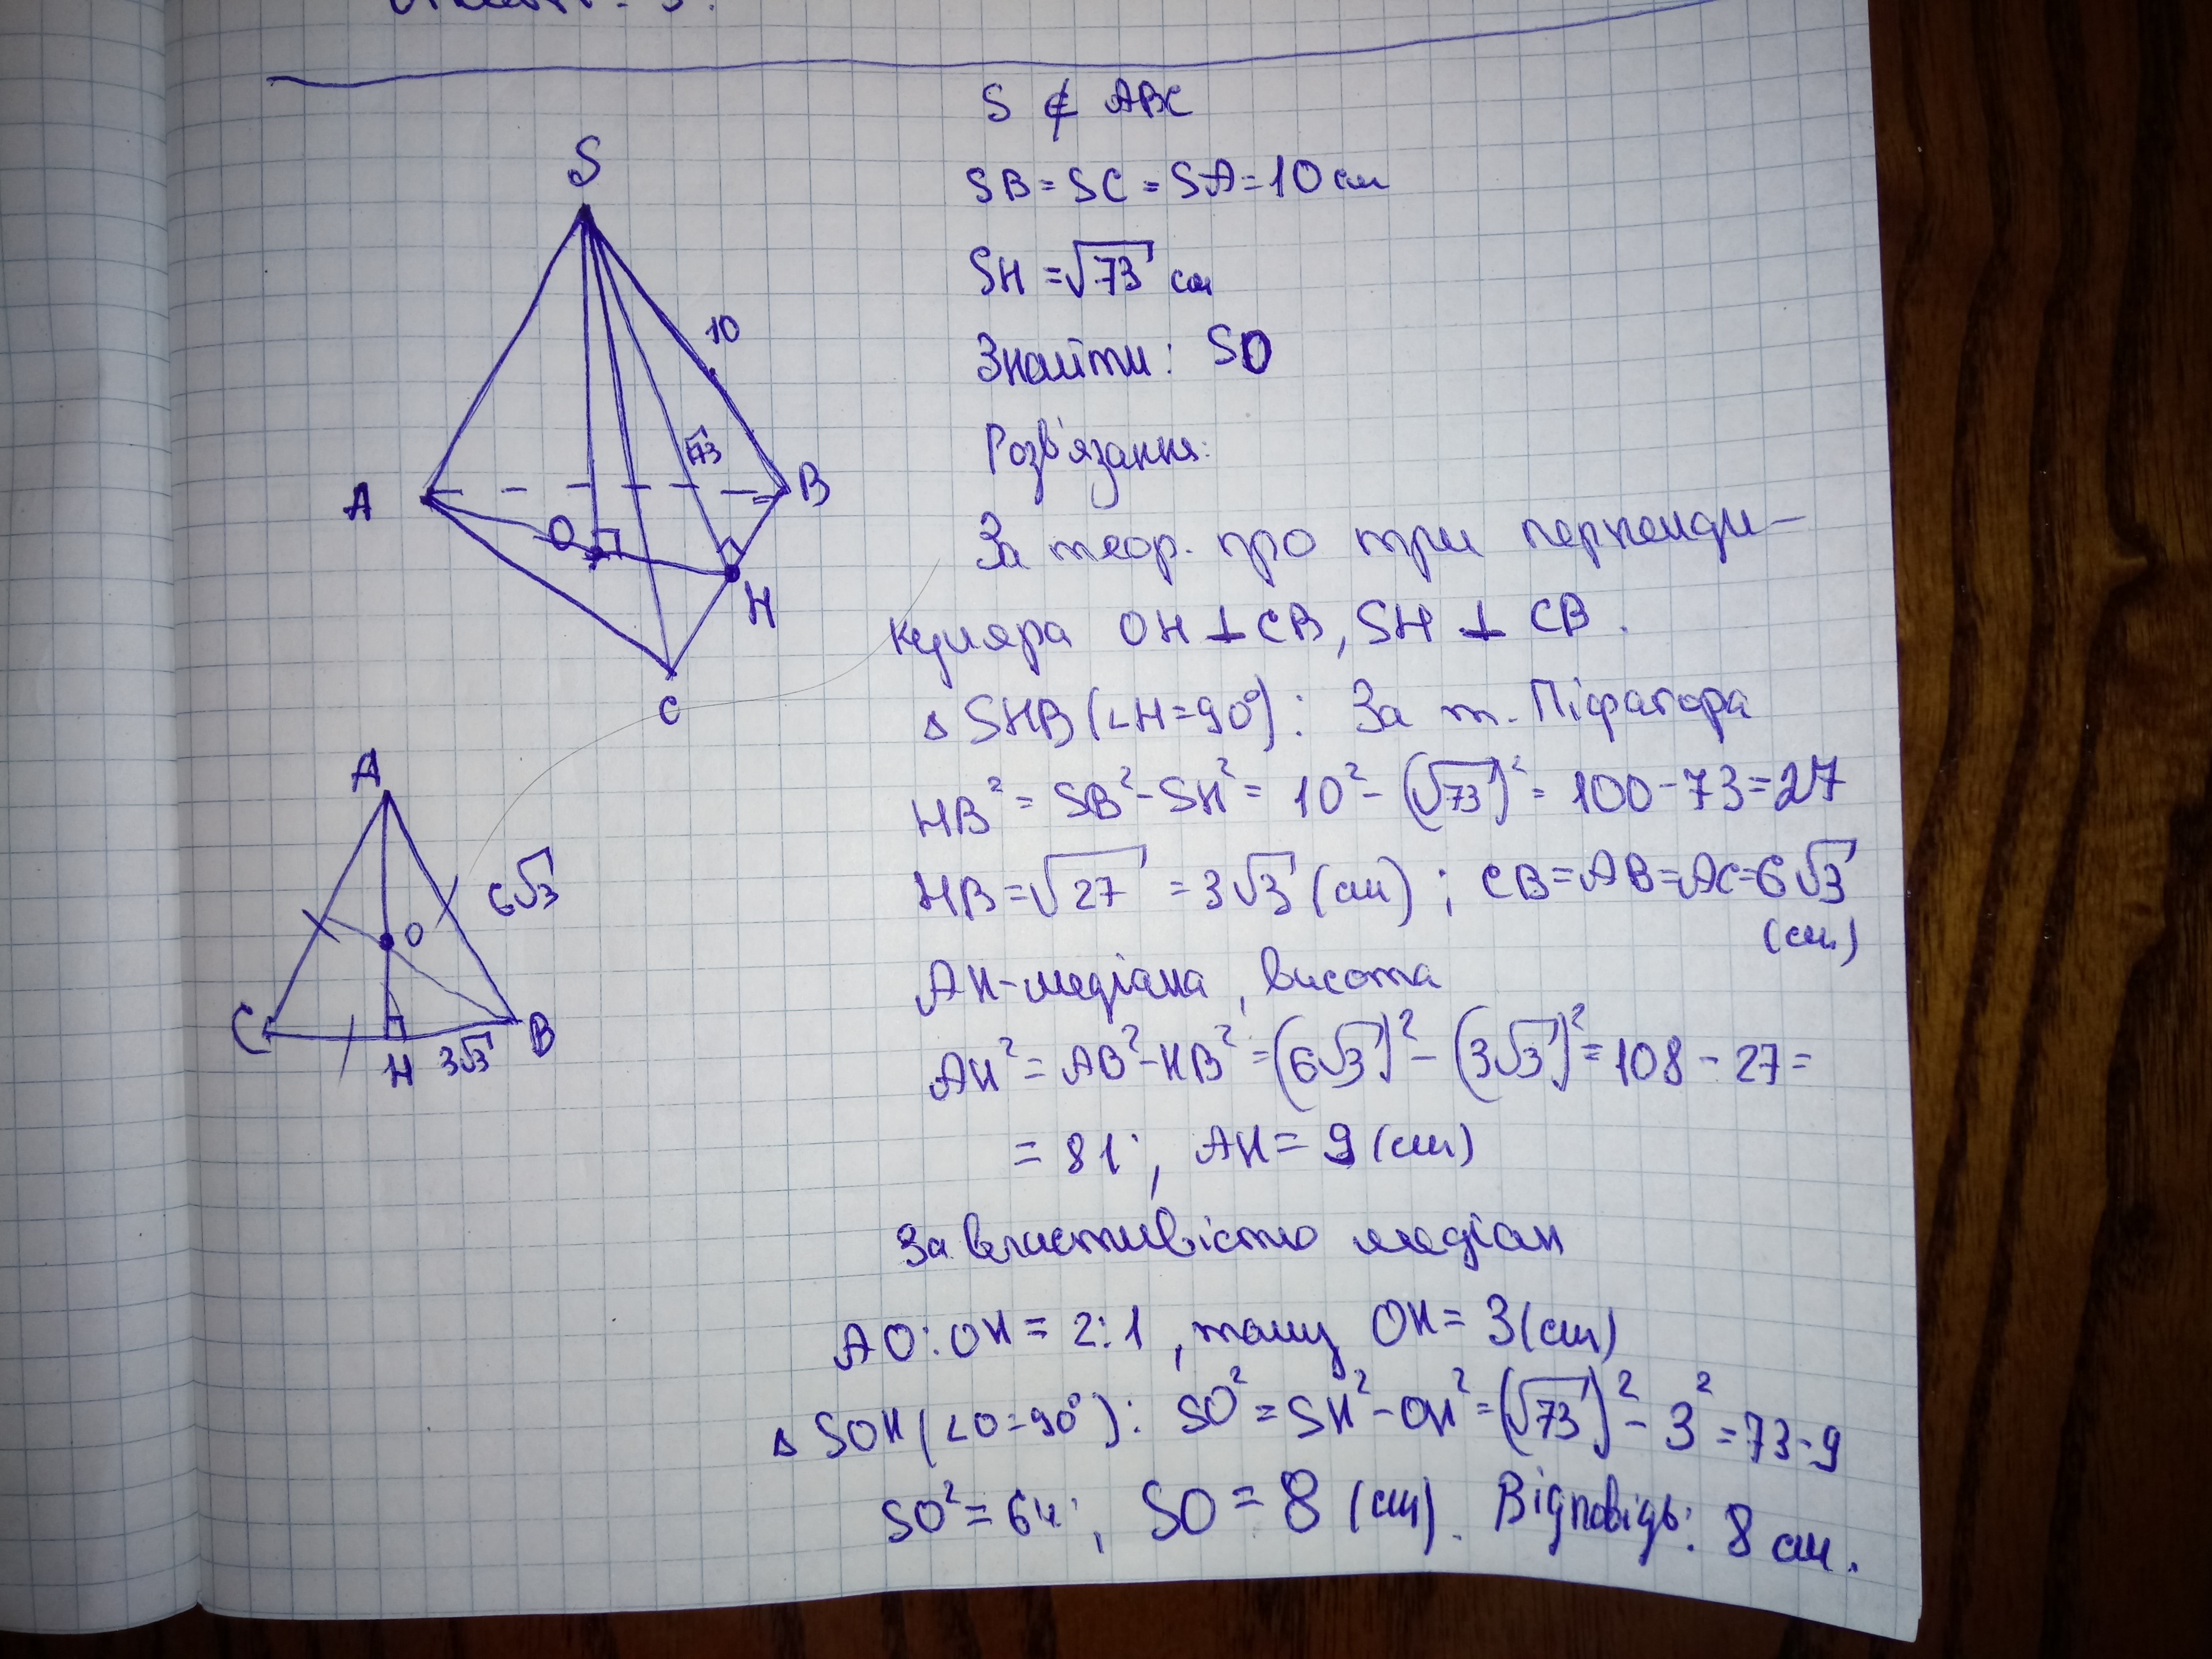 S ∉ ABC
SB = SC = SA = 10 см
SH = √73 см
Знайти: SO
Розв'язання:
За теор. про три перпенди-
куляра OH ⊥ CB, SH ⊥ CB.
△ SHB (∠H=90°): За т. Піфагора
HB² = SB² - SH² = 10² - (√73)² = 100 - 73 = 27
HB = √27 = 3√3 (см) ; CB = AB = AC = 6√3
(см)
AH - медіана, висота
AH² = AB² - HB² = (6√3)² - (3√3)² = 108 - 27 =
= 81 ; AH = 9 (см)
За властивістю медіан
AO : OH = 2 : 1 , тому OH = 3 (см)
△ SOH (∠O = 90°): SO² = SH² - OH² = (√73)² - 3² = 73 - 9
SO² = 64 ; SO = 8 (см). Відповідь: 8 см.
S
10
√73
A
B
O
H
C
A
6√3
O
C
H
3√3
B